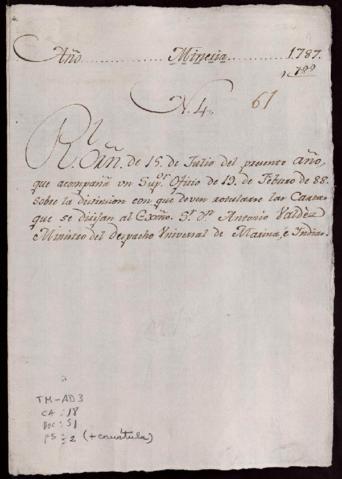 Año........Mineria........1787.
y 788
N. 4,, 61
Rl. Orñ. de 15,, de Julio del presente año,
que acompaña un Supor. Oficio de 19,, de Febrero de 88,,
sobre la distincion con que deven rotularse las Cartas
que se dirijan al Exmo. Sr. Dn. Antonio Valdez
Ministro del Despacho Universal de Marina, é Indias.
TM-AD3
CA: 18
DOC: 51
FS: 2 (+ carátula)